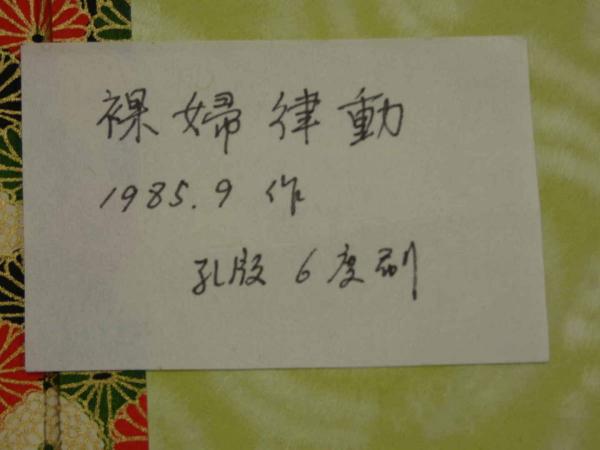 裸婦律動
1985.9 作
孔版 6度刷